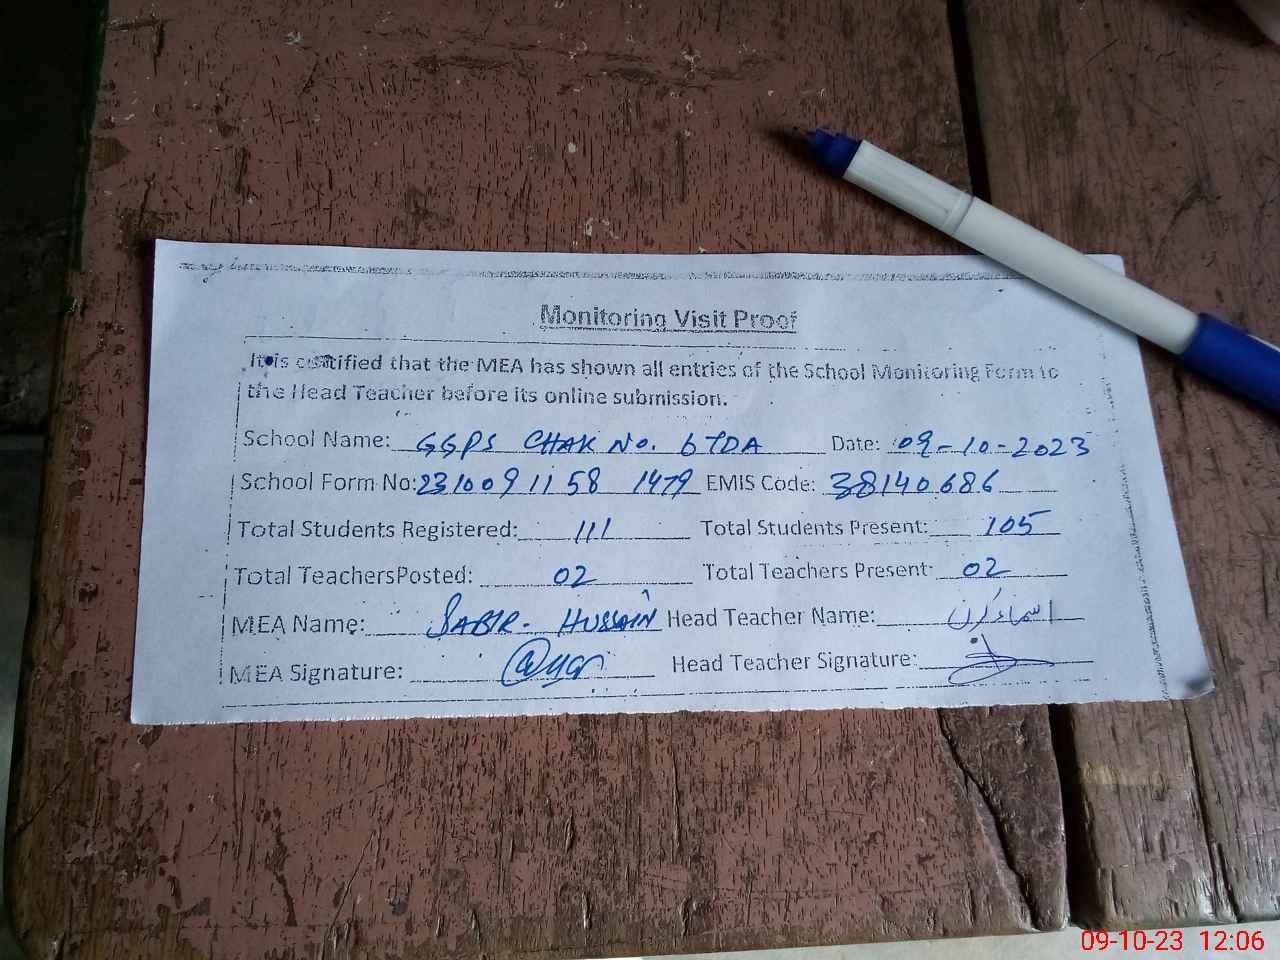 Monitoring Visit Proof
It is certified that the MEA has shown all entries of the School Monitoring Form to
the Head Teacher before its online submission.
School Name: GGPS CHAK No. 6 TDA Date: 09-10-2023
School Form No: 231009 1158 1479 EMIS Code: 38140686
Total Students Registered: 111 Total Students Present: 105
Total TeachersPosted: 02 Total Teachers Present: 02
MEA Name: SABIR. HUSSAIN Head Teacher Name: اسماء
MEA Signature: Head Teacher Signature:
09-10-23 12:06